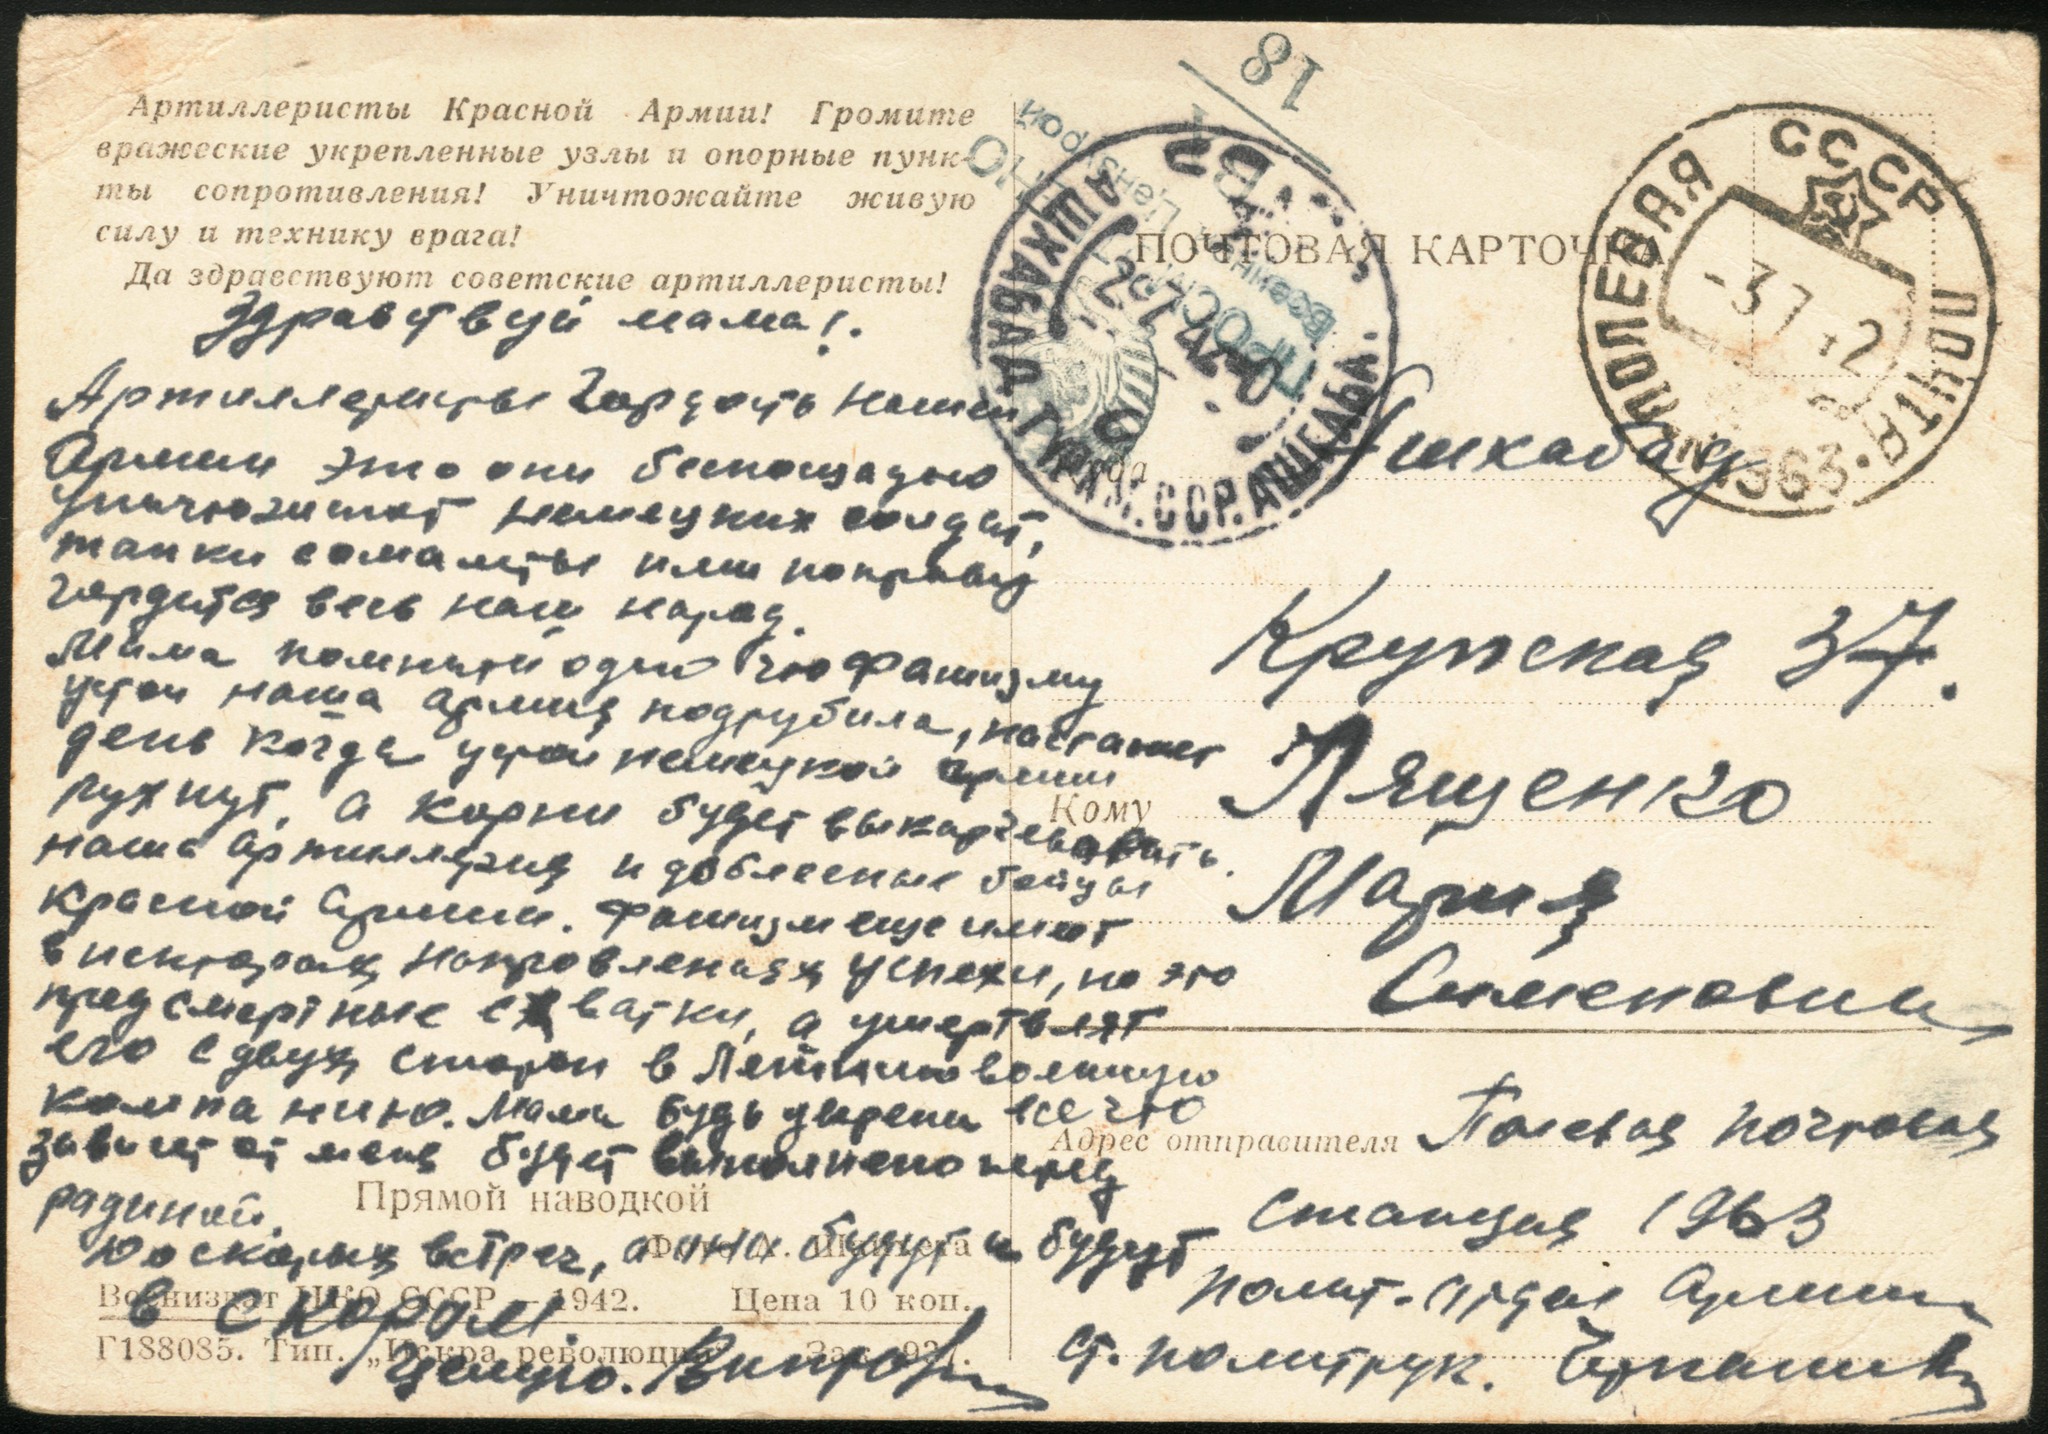 Артиллеристы Красной Армии! Громите
вражеские укрепленные узлы и опорные пунк-
ты сопротивления! Уничтожайте живую
силу и технику врага!
Да здравствуют советские артиллеристы!
Здравствуй мама!.
Артиллеристы гордость нашей
Армии это они беспощадно
уничтожают немецких солдат,
танки самалеты ими поправу
гордится весь наш народ.
Мама помни одно что фашизму
устои наша армия подрубила, настанет
день когда устои немецкой армии
рухнут, а корни будет выкорчевовать
наша артиллерия и доблесные бойцы
красной армии. Фашизм еще имеет
в некоторых направлениях успехи, но это
предсмертные схватки, а умертвлят
его с двух сторон в летнию военную
компанию. Мама будь уверена все что
зависит от меня будет выполнено перед
радиной.
До скорых встреч, а они будут и будут
в скором.
Целую. Виктор
Прямой наводкой
Фото А. Шайхета
Воениздат НКО СССР — 1942. Цена 10 коп.
Г188085. Тип. „Искра революции“ Зак.
18
ПРОСМОТРЕНО
Военной Цензурой
АШХАБАД ТУРКМ. ССР. АШХЕАБА.
2 7 42
ПОЧТОВАЯ КАРТОЧКА
СССР
ПОЛЕВАЯ ПОЧТА
-3 7 42
№ 1963
Куда Ашхабад
Крупская 37.
Кому Лященко
Мария
Симеоновна
Адрес отправителя Полевая почтовая
станция 1963
полит-отдел Армии
ст. политрук.